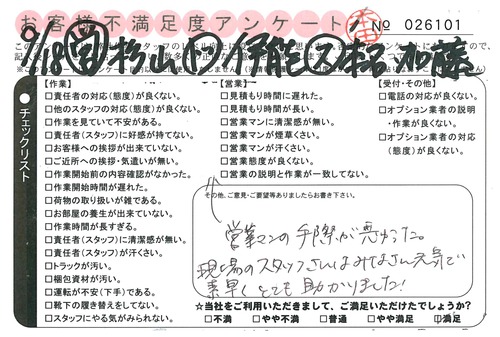 お客様不満足度アンケート
No 026101
チェックリスト
【作業】
□責任者の対応(態度)が良くない。
□他のスタッフの対応(態度)が良くない。
□作業を見ていて不安がある。
□責任者(スタッフ)に好感が持てない。
□お客様への挨拶が出来ていない。
□ご近所への挨拶・気遣いが無い。
□作業開始前の内容確認がなかった。
□作業開始時間が遅れた。
□荷物の取り扱いが雑である。
□お部屋の養生が出来ていない。
□作業時間が長すぎる。
□責任者(スタッフ)に清潔感が無い。
□責任者(スタッフ)が汗くさい。
□トラックが汚い。
□梱包資材が汚い。
□運転が不安(下手)である。
□靴下の履き替えをしてない。
□スタッフにやる気がみられない。
【営業】
□見積もり時間に遅れた。
□見積もり時間が長い。
□営業マンに清潔感が無い。
□営業マンが煙草くさい。
□営業マンが汗くさい。
□営業態度が良くない。
□営業の説明と作業が一致してない。
【受付・その他】
□電話の対応が良くない。
□オプション業者の説明
・作業が良くない。
□オプション業者の対応
(態度)が良くない。
その他、ご意見・ご要望等ありましたらお書き下さい。
営業マンの手際が悪かった。
現場のスタッフさんはみなさん元気で
素早くとても助かりました!
★当社をご利用いただきまして、ご満足いただけたでしょうか?
□不満 □やや不満 □普通 □やや満足 □満足